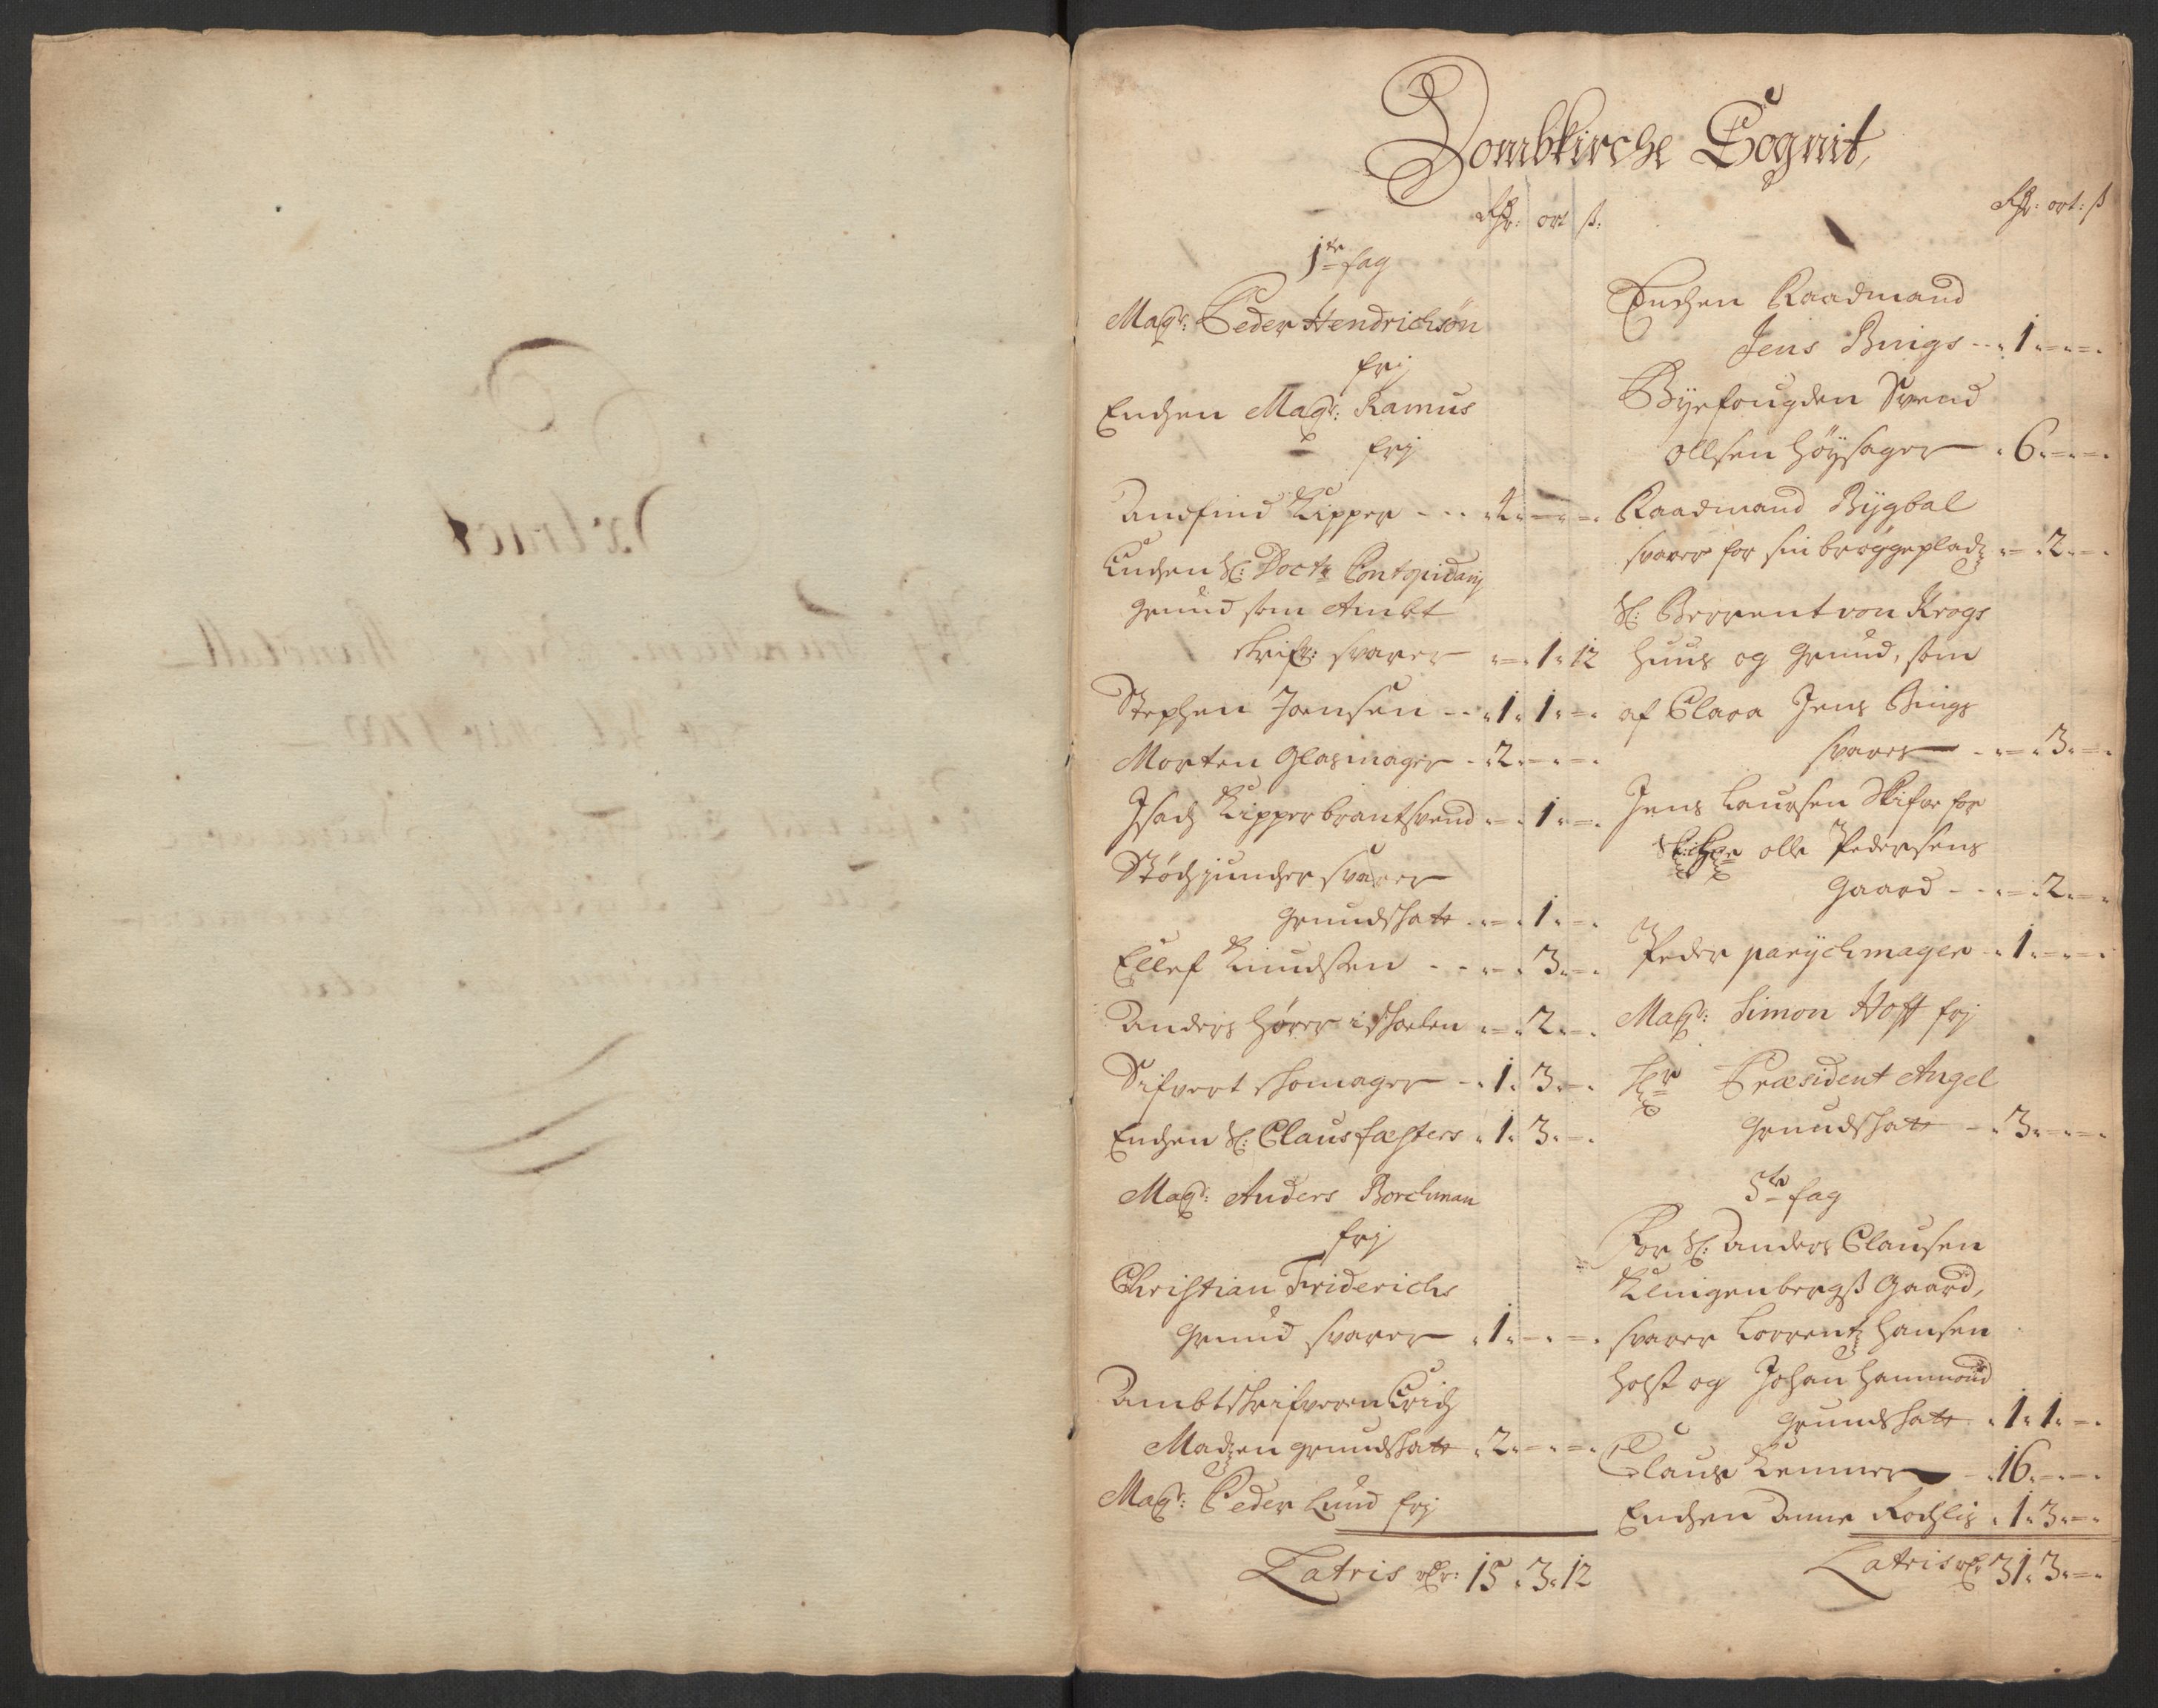 Dombkirche Sognit,
Rdr: ort ß:
1te fag
Magr: Peder Hendrichsøn
frj
Enchen Magr: Ramus
frj
Andfind Kipper - - - 4 - -
Enchen Sl: Doctr Pontopidanj
grund som Ambt
skrifr: svarer - 1 - 12
Stephen Joensen - - 1 - 1 -
Morten Glasmager - 2 - -
Isach Kipper brantsvend - 1 -
Stødjuncher svarer
grundschatt - 1 -
Ellef Knudsen - - - 3 -
Anders hører i schoelen - 2 -
Sifvert skomager - 1 - 3 -
Enchen Sl: Claus fæsters 1 - 3 -
Magr: Anders Borchman
frj
Christian Friderichs
grund svarer 1 - -
Ambtskrifveren Erich
Madzen grundschatt 2 - -
Magr: Peder Lund frj
Latris rdr: 15 - 3 - 12
Rdr: ort: ß
Enchen Raadmand
Jens Bings - - 1 - -
Byefougden Svend
Ollsen Høysager - 6 - -
Raadmand Bygbal
svarer for sin bryggepladz - 2 -
Sl: Berrent von Krogs
huus og grund, som
af Clara Jens Bings
svares - - 3 -
Jens Laursen Skifver for
olle Pedersens
Gaard - - - 2 -
Peder parychmager - 1 - -
Magr: Simon Hoff frj
Hr Præsident Angel
Grundschatt - 3 - -
3te fag
For Sl: Anders Clausen
Klingenbergs Gaard,
svarer Lorrentz Hansen
Holst og Johan Hammond
grundschatt 1 - 1 -
Claus Kemmer - 16 - -
Enchen Anne Rochlis 1 - 3 -
Latris rdr 31 - 3 -